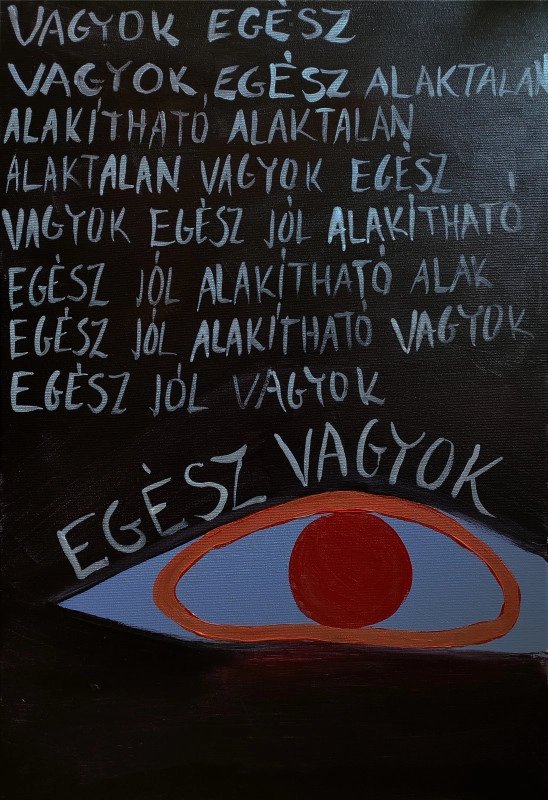 VAGYOK EGÉSZ
VAGYOK EGÈSZ ALAKTALAN
ALAKÍTHATÓ ALAKTALAN
ALAKTALAN VAGYOK EGÈSZ
VAGYOK EGÈSZ JÓL ALAKÍTHATÓ
EGÈSZ JÓL ALAKÍTHATÓ ALAK
EGÈSZ JÓL ALAKÍTHATÓ VAGYOK
EGÈSZ JÓL VAGYOK
EGÈSZ VAGYOK